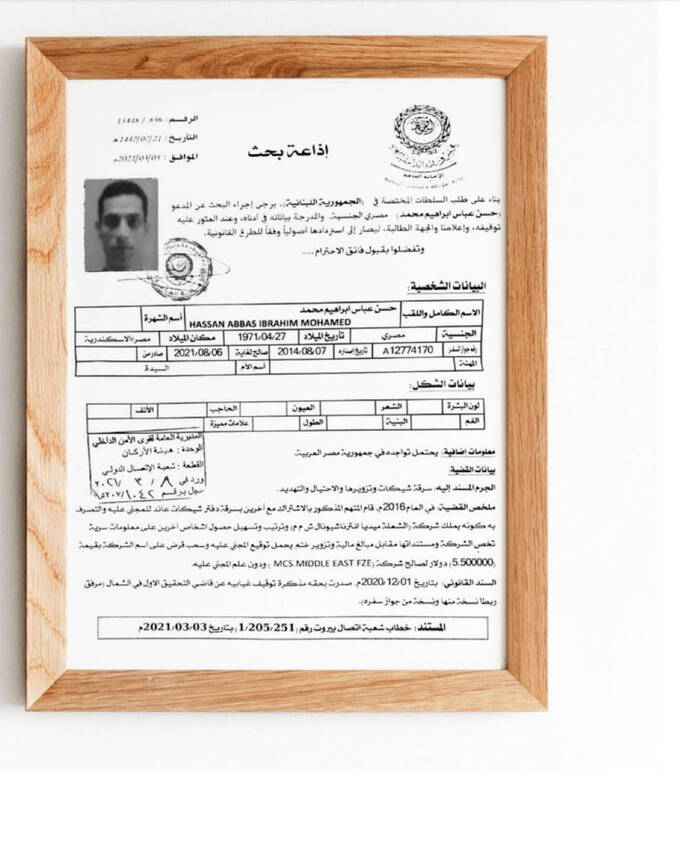 الرقم: 836 / 13448
التاريخ: 1442/07/21هـ
الموافق: 2021/03/05م
الأمانة العامة
إذاعة بحث
بناء على طلب السلطات المختصة في (الجمهورية اللبنانية)، يرجى إجراء البحث عن المدعو
(حسن عباس ابراهيم محمد) مصري الجنسية، والمدرجة بياناته في أدناه، وعند العثور عليه
توقيفه، وإعلامنا والجهة الطالبة، ليصار إلى استردادها أصولياً وفقاً للطرق القانونية.
وتفضلوا بقبول فائق الاحترام.....
البيانات الشخصية:
الاسم الكامل واللقب حسن عباس ابراهيم محمد أسم الشهرة
HASSAN ABBAS IBRAHIM MOHAMED
الجنسية مصري تاريخ الميلاد 1971/04/27 مكان الميلاد مصر/الاسكندرية
رقم جواز السفر A12774170 تاريخ اصداره 2014/08/07 صالح لغاية 2021/08/06 صادر من
المهنة أسم الأم السيدة
بيانات الشكل:
لون البشرة الشعر العيون الحاجب الأنف
الفم البنية الطول علامات مميزة
المديرية العامة لقوى الأمن الداخلي
الوحدة: هيئة الأركان
القطعة: شعبة الإتصال الدولي
ورد في ٨ / ٣ / ٢٠٢١
سجل برقم
معلومات إضافية: يحتمل تواجده في جمهورية مصر العربية.
بيانات القضية
الجرم المسند إليه: سرقة شيكات وتزويرها والاحتيال والتهديد.
ملخص القضية: في العام 2016م، قام المتهم المذكور بالاشتراك مع آخرين بسرقة دفتر شيكات عائد للمجني عليه والتصرف
به كونه يملك شركة (الشعلة ميديا انترناشيونال ش م م) وترتيب وتسهيل حصول اشخاص آخرين على معلومات سرية
تخص الشركة ومستنداتها مقابل مبالغ مالية وتزوير ختم يحمل توقيع المجني عليه وسحب قرض على اسم الشركة بقيمة
(5.500000) دولار لصالح شركة (MCS.MIDDLE EAST FZE) ودون علم المجني عليه.
السند القانوني: بتاريخ 2020/12/01م، صدرت بحقه مذكرة توقيف غيابيه عن قاضي التحقيق الاول في الشمال (مرفق
ربطا نسخة منها ونسخة من جواز سفره).
المستند: خطاب شعبة اتصال بيروت رقم (1/205/251) بتاريخ 2021/03/03م